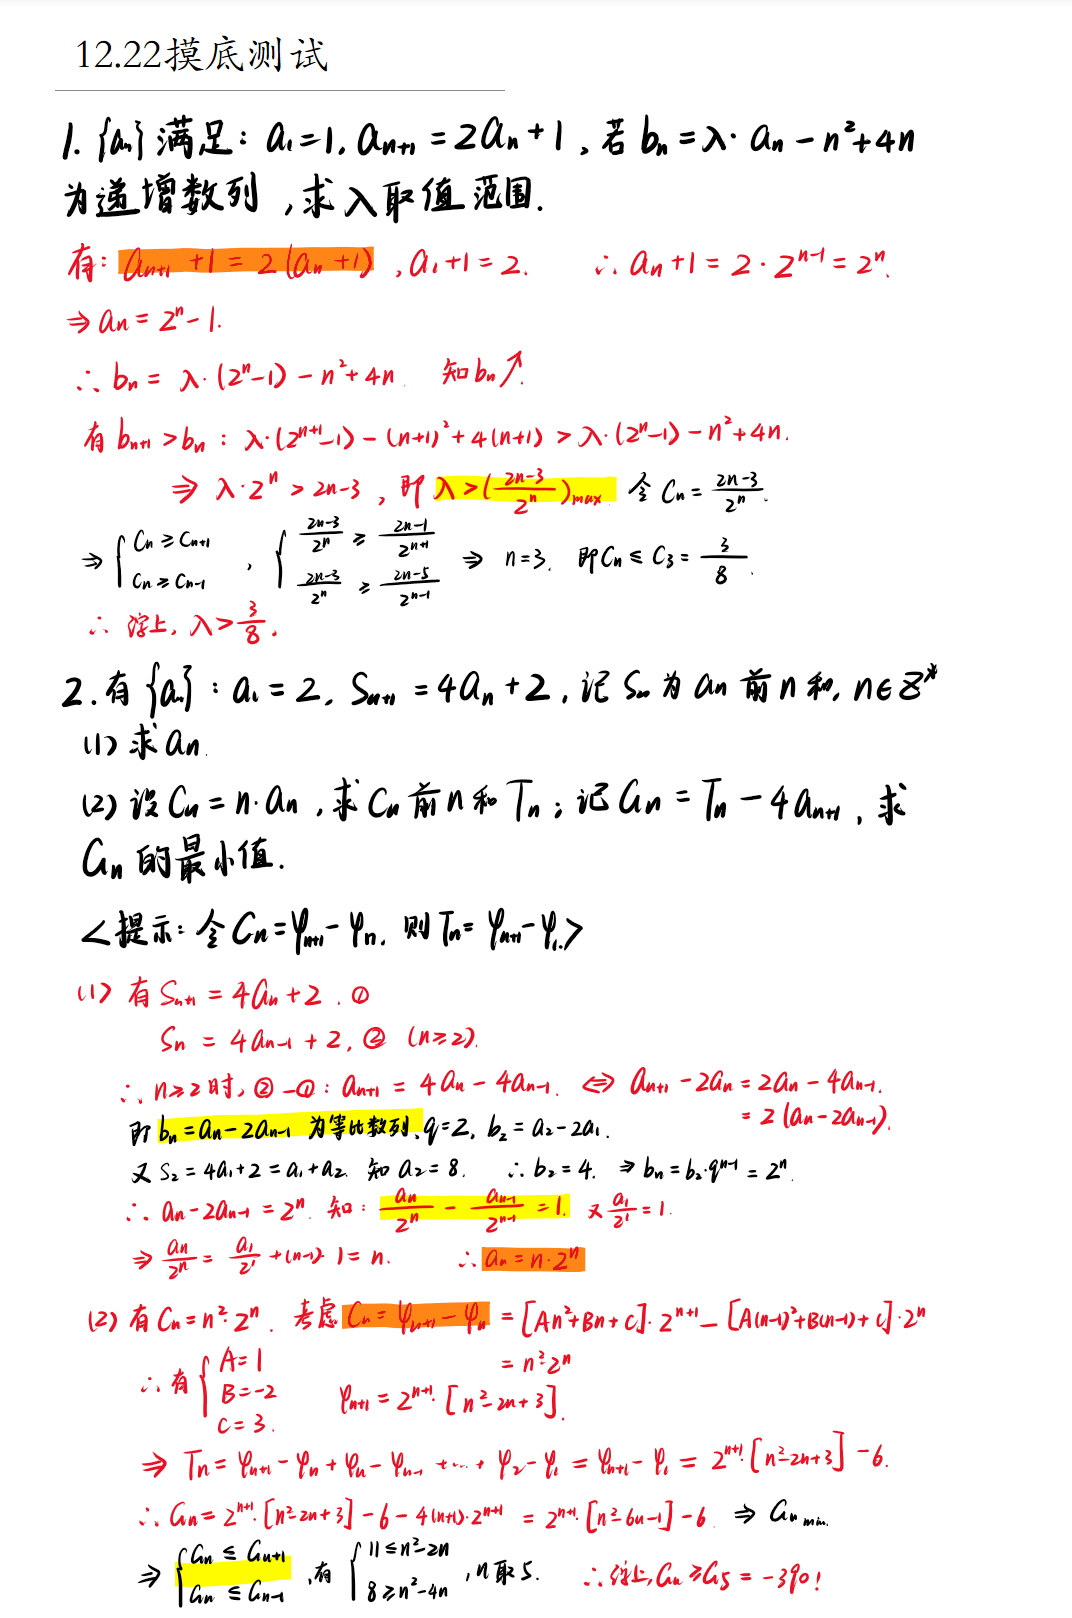 12.22摸底测试
1. {an} 满足: a₁=1, aₙ₊₁ = 2aₙ+1, 若 bₙ = λ· aₙ - n²+4n
为递增数列, 求λ取值范围.
有: aₙ₊₁ +1 = 2(aₙ +1), a₁+1 = 2. ∴ aₙ+1 = 2·2ⁿ⁻¹ = 2ⁿ.
⇒ aₙ = 2ⁿ-1.
∴ bₙ = λ·(2ⁿ-1) - n²+4n. 知bₙ↗.
有 bₙ₊₁ > bₙ : λ·(2ⁿ⁺¹-1) - (n+1)²+4(n+1) > λ·(2ⁿ-1) - n²+4n.
⇒ λ·2ⁿ > 2n-3, 即 λ > ((2n-3)/2ⁿ)max 令 Cₙ = (2n-3)/2ⁿ.
⇒ { Cₙ ≥ Cₙ₊₁ , Cₙ ≥ Cₙ₋₁ , { (2n-3)/2ⁿ ≥ (2n-1)/2ⁿ⁺¹ , (2n-3)/2ⁿ ≥ (2n-5)/2ⁿ⁻¹ ⇒ n=3. 即Cₙ ≤ C₃ = 3/8.
∴ 综上, λ > 3/8.
2. 有{aₙ}: a₁ = 2, Sₙ₊₁ = 4aₙ+2, 记 Sₙ 为 aₙ 前n和, n∈Z*
(1) 求aₙ.
(2) 设Cₙ = n·aₙ, 求Cₙ前n和Tₙ; 记Gₙ = Tₙ - 4aₙ₊₁, 求
Gₙ的最小值.
<提示: 令Cₙ=φₙ₊₁-φₙ, 则Tₙ= φₙ₊₁-φ₁.>
(1) 有Sₙ₊₁ = 4aₙ+2. ①
Sₙ = 4aₙ₋₁ + 2, ② (n≥2).
∴ n≥2时, ②-①: aₙ₊₁ = 4aₙ - 4aₙ₋₁. ⇔ aₙ₊₁ - 2aₙ = 2aₙ - 4aₙ₋₁.
= 2(aₙ-2aₙ₋₁).
即 bₙ=aₙ-2aₙ₋₁ 为等比数列, q=2, b₂ = a₂-2a₁.
又 S₂ = 4a₁+2 = a₁+a₂. 知 a₂=8. ∴ b₂=4. ⇒ bₙ=b₂·qⁿ⁻¹ = 2ⁿ.
∴ aₙ-2aₙ₋₁ = 2ⁿ. 知: aₙ/2ⁿ - aₙ₋₁/2ⁿ⁻¹ = 1. 又 a₁/2¹ = 1.
⇒ aₙ/2ⁿ = a₁/2¹ +(n-1)·1 = n. ∴ aₙ = n·2ⁿ
(2) 有Cₙ=n²·2ⁿ. 考虑 Cₙ=φₙ₊₁-φₙ = [An²+Bn+C]·2ⁿ⁺¹ - [A(n-1)²+B(n-1)+C]·2ⁿ
= n²·2ⁿ
∴ 有 { A=1
B=-2
C=3. φₙ₊₁ = 2ⁿ⁺¹·[n²-2n+3].
⇒ Tₙ = φₙ₊₁-φₙ+φₙ-φₙ₋₁+...+φ₂-φ₁ = φₙ₊₁-φ₁ = 2ⁿ⁺¹·[n²-2n+3]-6.
∴ Gₙ = 2ⁿ⁺¹·[n²-2n+3]-6-4(n+1)·2ⁿ⁺¹ = 2ⁿ⁺¹·[n²-6n-1]-6 ⇒ Gₙ min.
⇒ { Gₙ ≤ Gₙ₊₁ , Gₙ ≤ Gₙ₋₁ , 有 { 11≤n²-2n , 8≥n²-4n , n取5. ∴综上, Gₙ≥G₅ = -390!